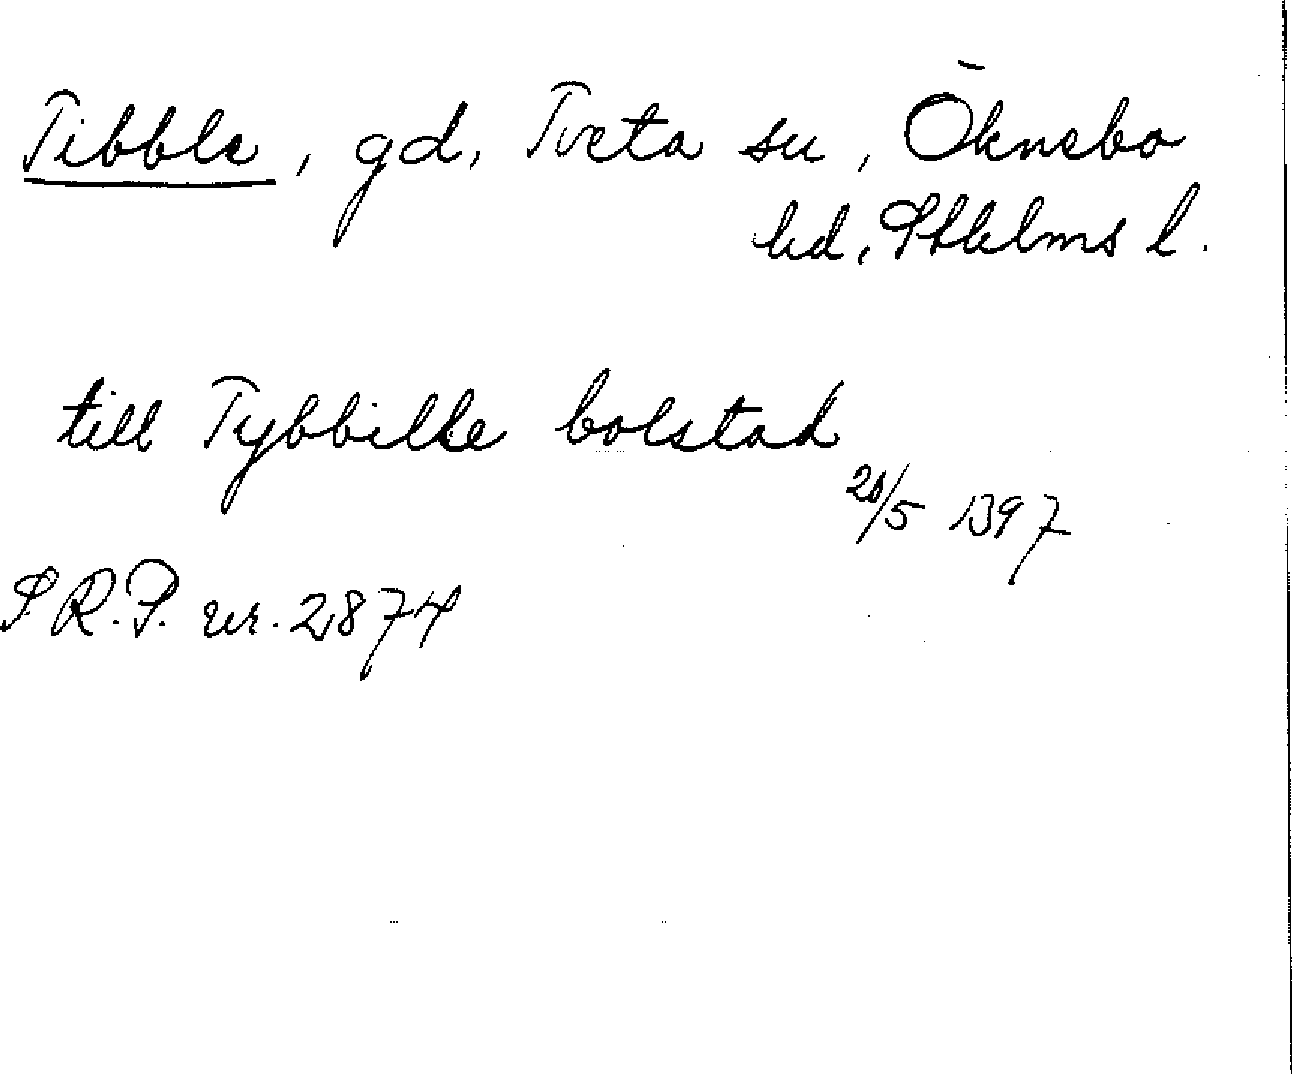 Tibble, gd, Tveta sn, Öknebo
hd, Sthlms l.
till Tybbilke bolstad
28/5 1397
S.R.P. nr. 2874